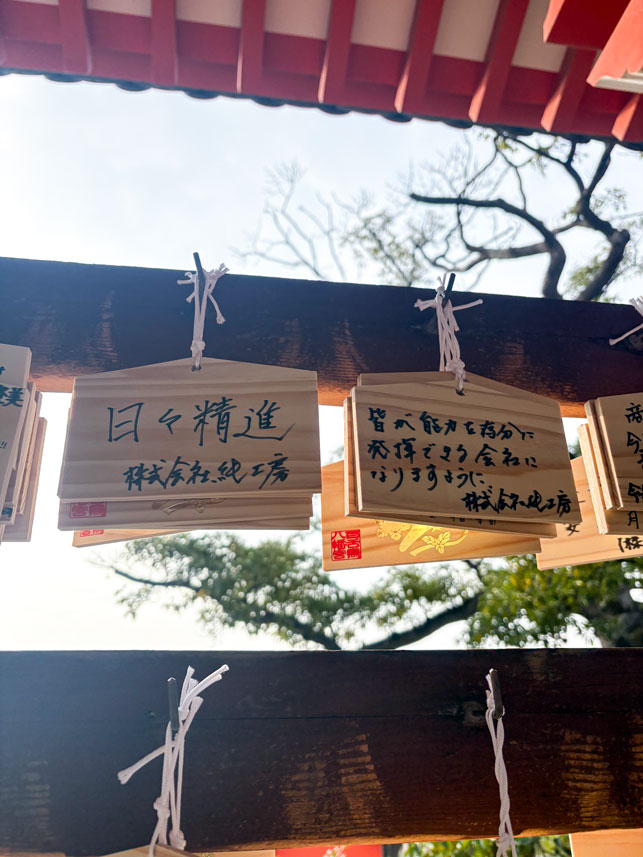 日々精進
株式会社純工房
皆が能力を存分に
発揮できる会社に
なりますように
株式会社純工房